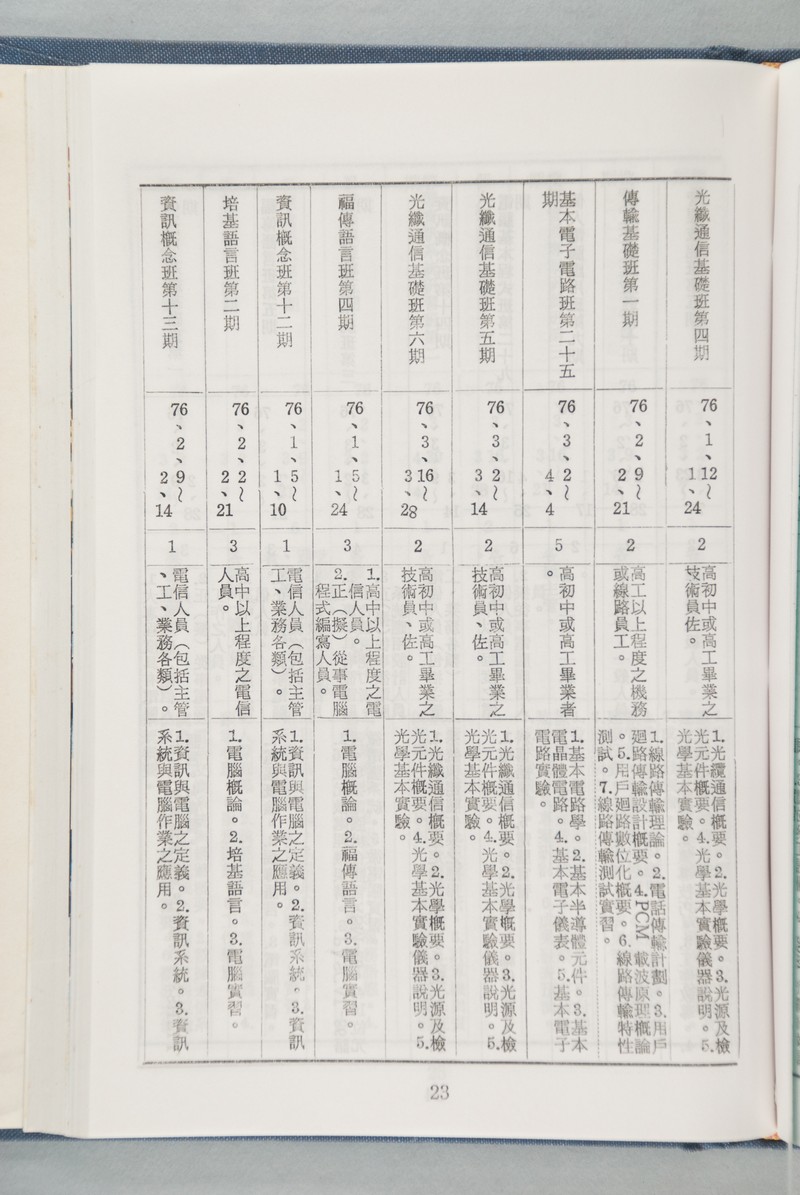 光纖通信基礎班第四期
76、1、12～
1、24
2
高初中或高工畢業之
技術員佐。
1.光纖通信概要。2.光學概要。3.光源及檢
光元件概要。4.光學基本實驗儀器說明。5.
光學基本實驗。
傳輸基礎班第一期
76、2、9～
2、21
2
高工以上程度之機務
或線路員工。
1.線路傳輸理論。2.電話傳輸計劃。3.用戶
迴路傳輸設計概要。4.PCM載波原理概論
。5.用戶迴路數位化概要。6.線路傳輸特性
測試。7.線路傳輸測試實習。
基本電子電路班第二十五
期
76、3、2～
4、4
5
高初中或高工畢業者
。
1.基本電路學。2.基本半導體元件。3.基本
電晶體電路。4.基本電子儀表。5.基本電子
電路實驗。
光纖通信基礎班第五期
76、3、2～
3、14
2
高初中或高工畢業之
技術員、佐。
1.光纖通信概要。2.光學概要。3.光源及檢
光元件概要。4.光學基本實驗儀器說明。5.
光學基本實驗。
光纖通信基礎班第六期
76、3、16～
3、28
2
高初中或高工畢業之
技術員、佐。
1.光纖通信概要。2.光學概要。3.光源及檢
光元件概要。4.光學基本實驗儀器說明。5.
光學基本實驗。
福傳語言班第四期
76、1、5～
1、24
3
1.高中以上程度之電
信人員。
2.正（擬）從事電腦
程式編寫人員。
1.電腦概論。2.福傳語言。3.電腦實習。
資訊概念班第十二期
76、1、5～
1、10
1
電信人員（包括主管
工、業務各類）。
1.資訊與電腦之定義。2.資訊系統。3.資訊
系統與電腦作業之應用。
培基語言班第二期
76、2、2～
2、21
3
高中以上程度之電信
人員。
1.電腦概論。2.培基語言。3.電腦實習。
資訊概念班第十三期
76、2、9～
2、14
1
電信人員（包括主管
、工、業務各類）。
1.資訊與電腦之定義。2.資訊系統。3.資訊
系統與電腦作業之應用。
23